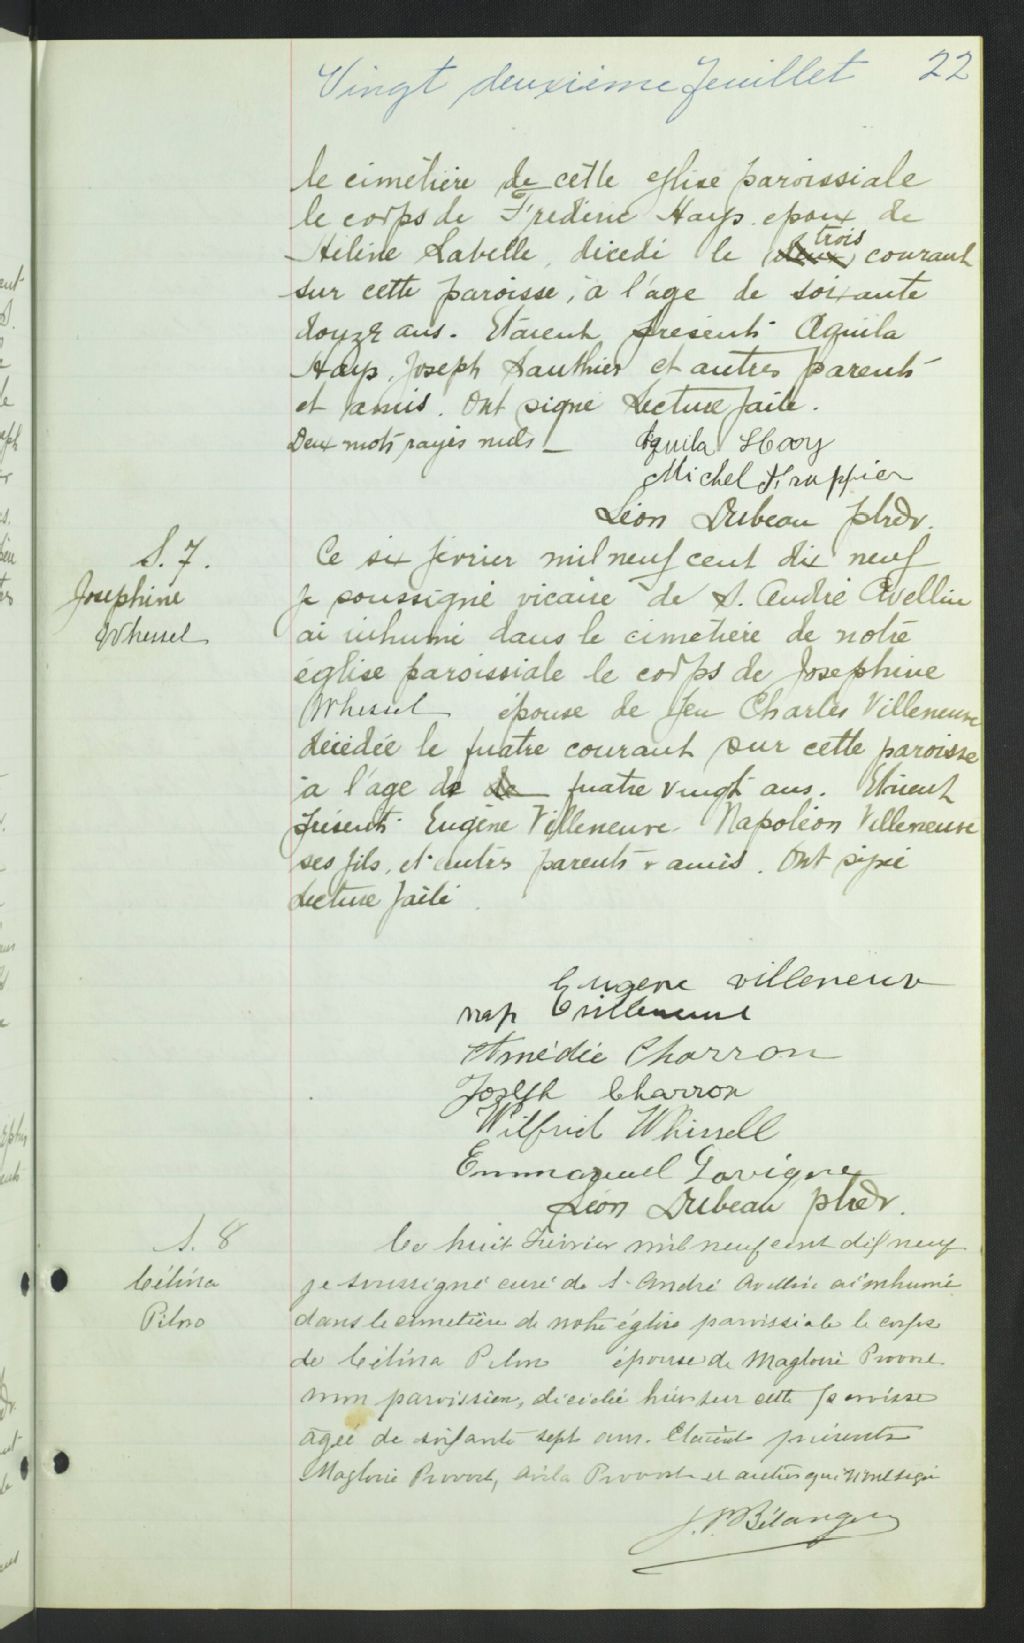 Vingt deuxième feuillet 22
le cimétière de cette église paroissiale
le corps de Fréderic Hays. époux de
Héline Labelle, décédé le deux trois courant
sur cette paroisse, à l'age de soixante
douze ans. Etaient présents Aquila
Hays, Joseph Gauthier et autres parents
et amis. Ont signé Lecture faite.
Deux mots rayés nuls —
Aquila Hay
Michel Frappier
Léon Dubeau ptredv.
S. 7.
Josephine
Whessel
Ce six février mil neuf cent dix neuf
je soussigné vicaire de S. André Avellin
ai inhumé dans le cimetière de notre
église paroissiale le corps de Josephine
Whessel épouse de feu Charles Villeneuve
décédée le quatre courant sur cette paroisse
à l'age de de quatre vingt ans. Etaient
présents Eugène Villeneuve Napoléon Villeneuve
ses fils, et autres parents & amis. Ont signé
Lecture faite
Eugene villeneuv
nap Villeneuve
Amédée Charron
Joseph Charron
Wilfrid Whissell
Emmanuel Lavigne
Léon Dubeau ptredv.
S. 8
Célina
Pilno
Ce huit Février mil neuf cent dix neuf
je soussigné curé de S. André Avellin ai inhumé
dans le cimetière de notre église paroissiale le corps
de Célina épouse de Magloire Provost
mon paroissien, décédée hier sur cette paroisse
agée de soixante sept ans. Etaient présents
Magloire Provost, Avila Provost et autres qui n'ont signé
J. P. Bélanger